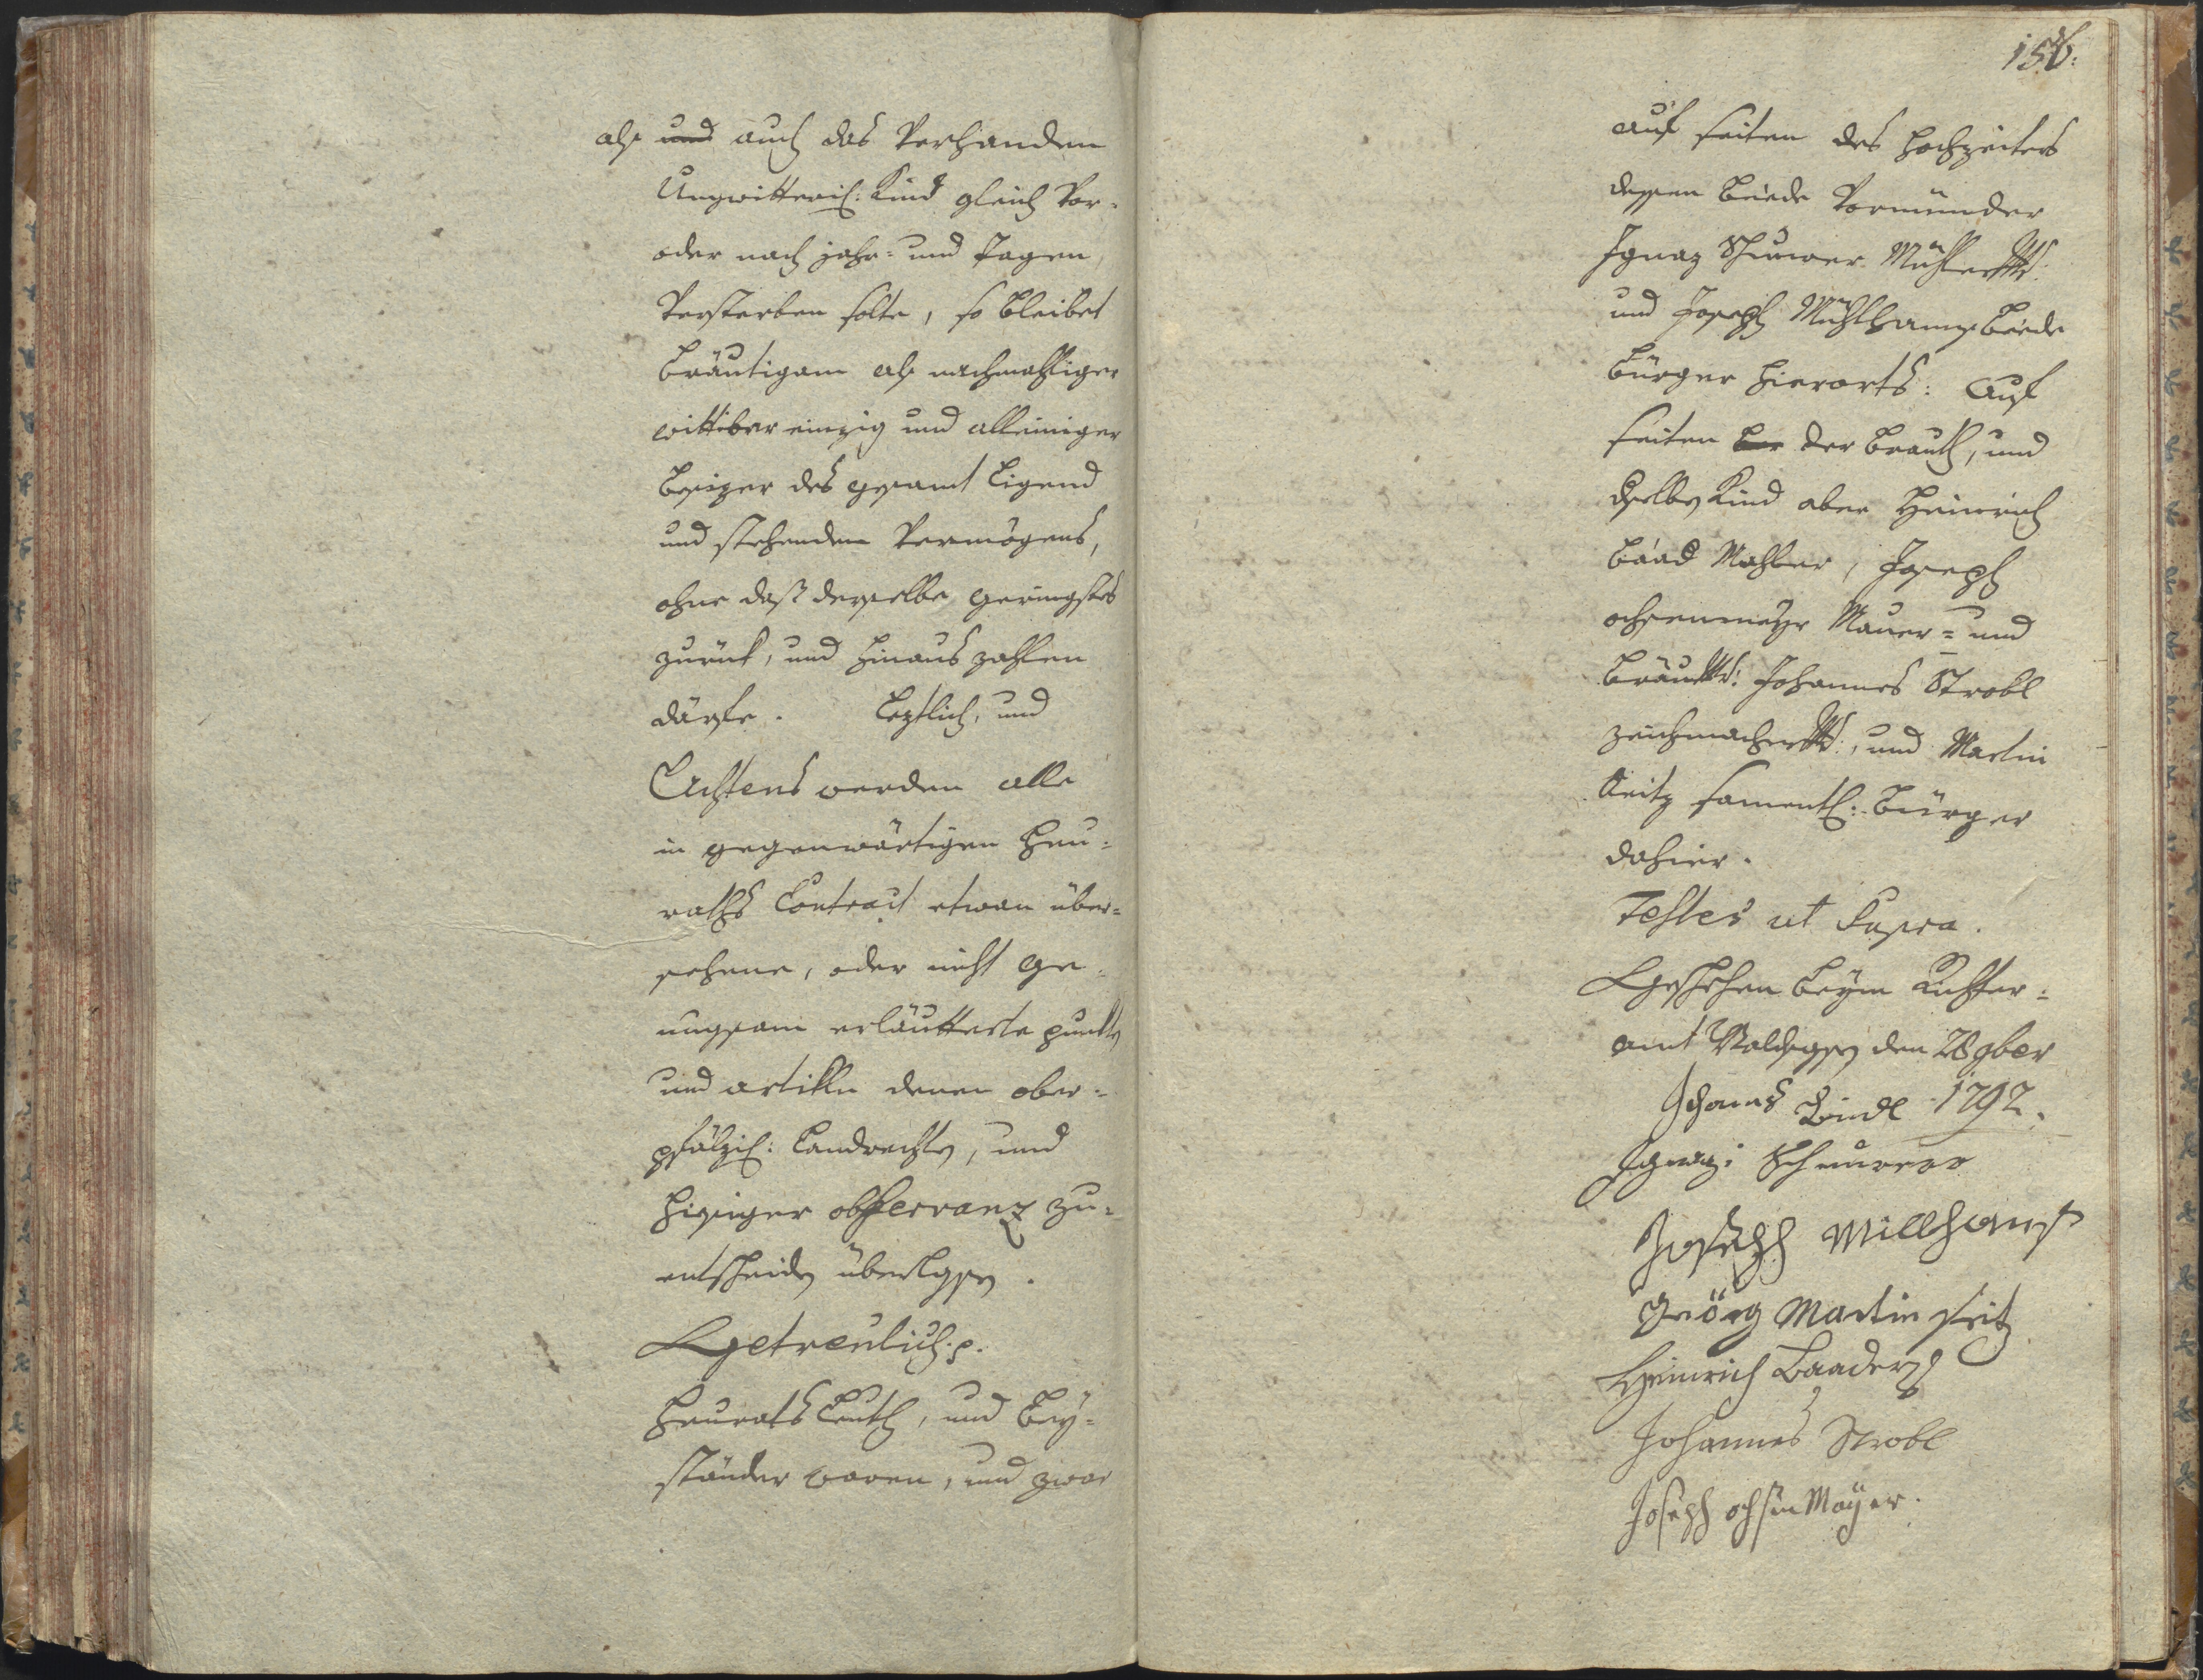 als und auch das Verhanden
Ungwitterisch: Kind gleich Vor-
oder nach jahr- und Tagen
Versterben solte, so bleibet
bräutigam als nachmahliger
wittiber einzig und alleiniger
besizer des gesamt Ligend
und stehenden Vermögens,
ohne daß derselbe geringstes
zurük, und hinaus zahlen
därfe. Leztlich, und
Achtens werden alle
in gegenwärtigen Heu-
raths Contract etwan über-
sehene, oder nicht ge-
nugsam erläutterte punkten
und artiklen denen ober-
pfälzis: Landrechten, und
hiesiger observanz zu-
entscheiden überlassen.
Getreulich p.
Heurats Leuth, und bey-
ständer waren, und zwar
156.
auf seiten des Hochzeiters
dessen beede Vormünder
Ignaz Scheurer Mühler
und Joseph Mühlhans beede
bürger hierorts: Auf
seiten der brauth, und
dselben Kind aber Heinrich
baad Mahler, Joseph
ochsenmayr Maurer- und
bräu Johannes Strobl
zeichmacher, und Martin
Seitz sament: bürger
dahier.
Testes ut Supra.
Geschehen beym Richter-
amt Waldsassen den 28 9ber
1792.
Ignazi Scheurer
Joseph Millhans
Geörg Martin seitz
Heinrich Baader
Johannes Strobl
Joseph ochsen Mayer.